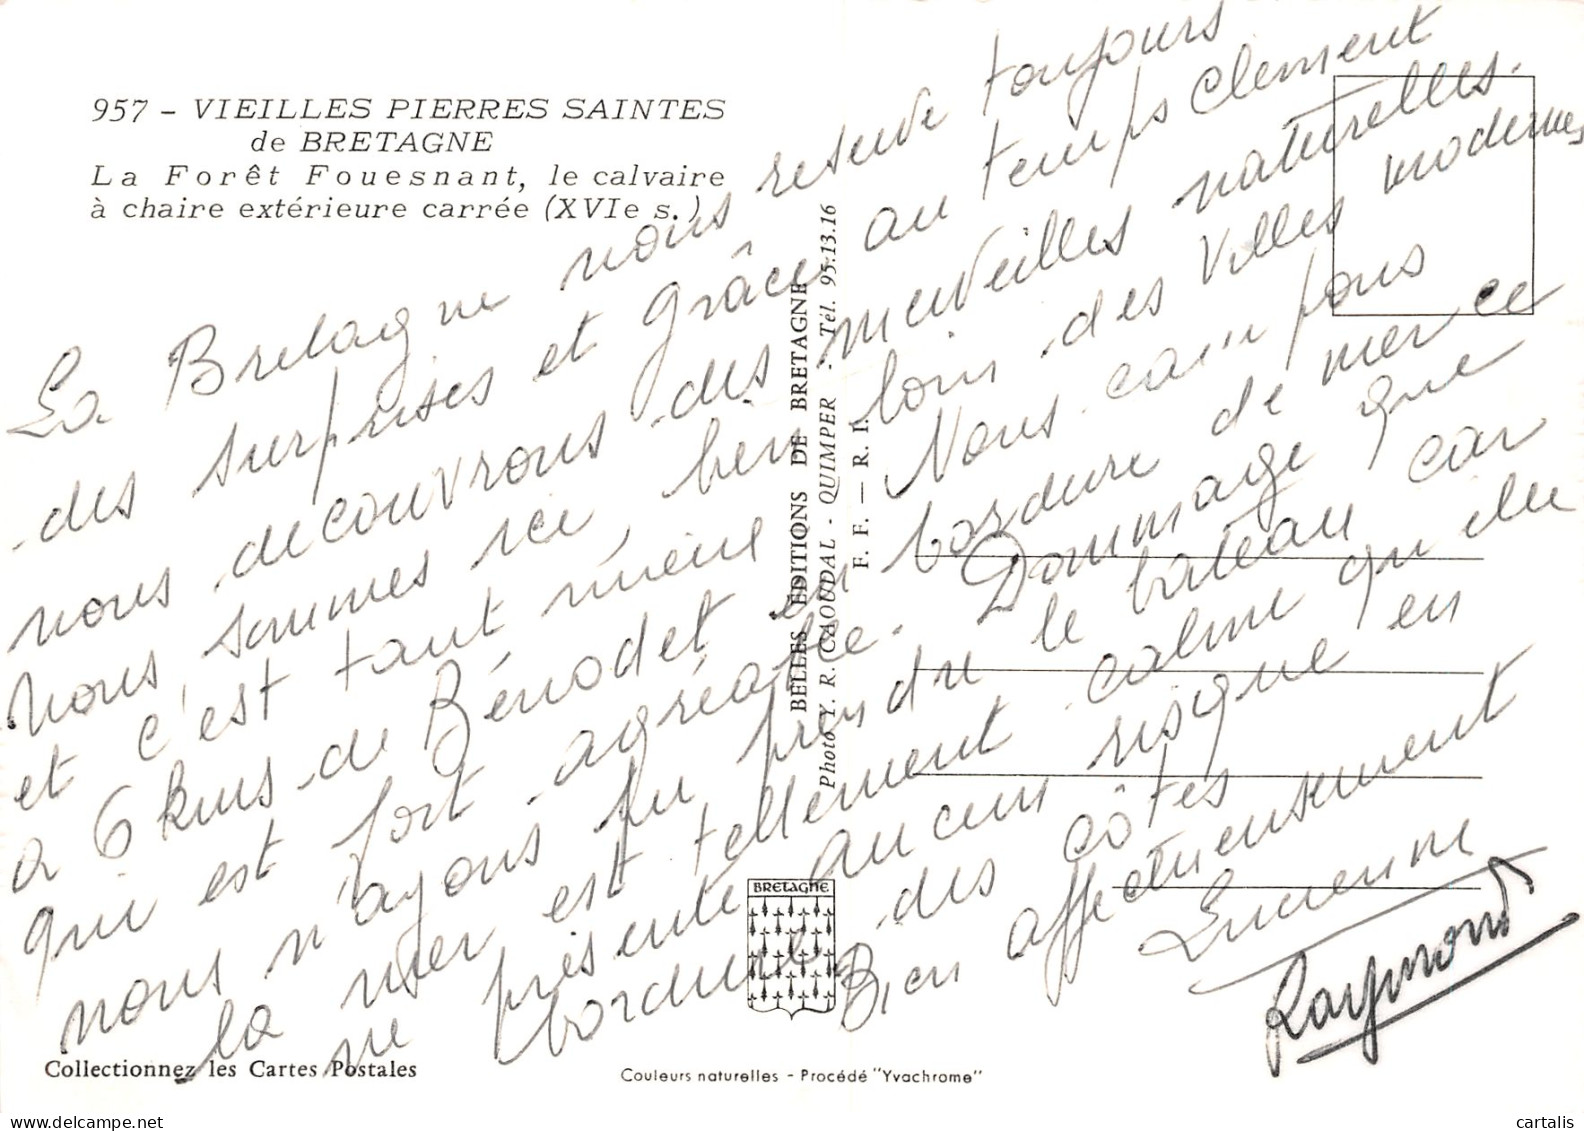 957 - VIEILLES PIERRES SAINTES
de BRETAGNE
La Forêt Fouesnant, le calvaire
à chaire extérieure carrée (XVIe s.)
La Bretagne nous reserve toujours
des surprises et grâce au temps clement
nous decouvrons des merveilles naturelles.
Nous sommes ici, bien loin des villes modernes
et c'est tant mieux Nous campons
a 6 kms de Bénodet en bordure de mer ce
qui est fort agréable. Dommage que
nous n'ayons pu prendre le bateau car
la mer est tellement calme qu'elle
ne présente aucun risque en
bordure des côtes
Bien affectueusement
Lucienne
Raymond
BELLES EDITIONS DE BRETAGNE
Photo Y. R. CAOUDAL - QUIMPER - Tél. 95.13.16
F. F. — R. I.
BRETAGNE
Collectionnez les Cartes Postales
Couleurs naturelles - Procédé "Yvachrome"
cartalis